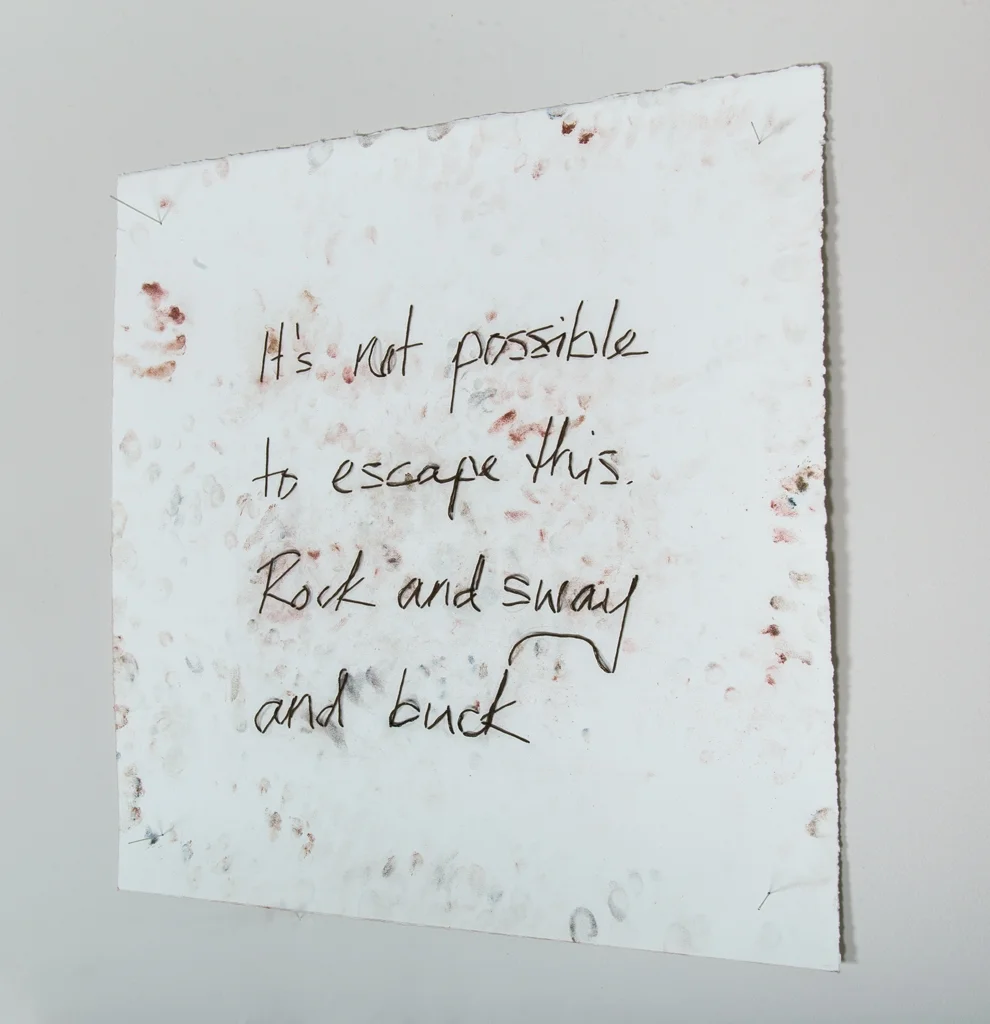 It's not possible
to escape this.
Rock and sway
and buck